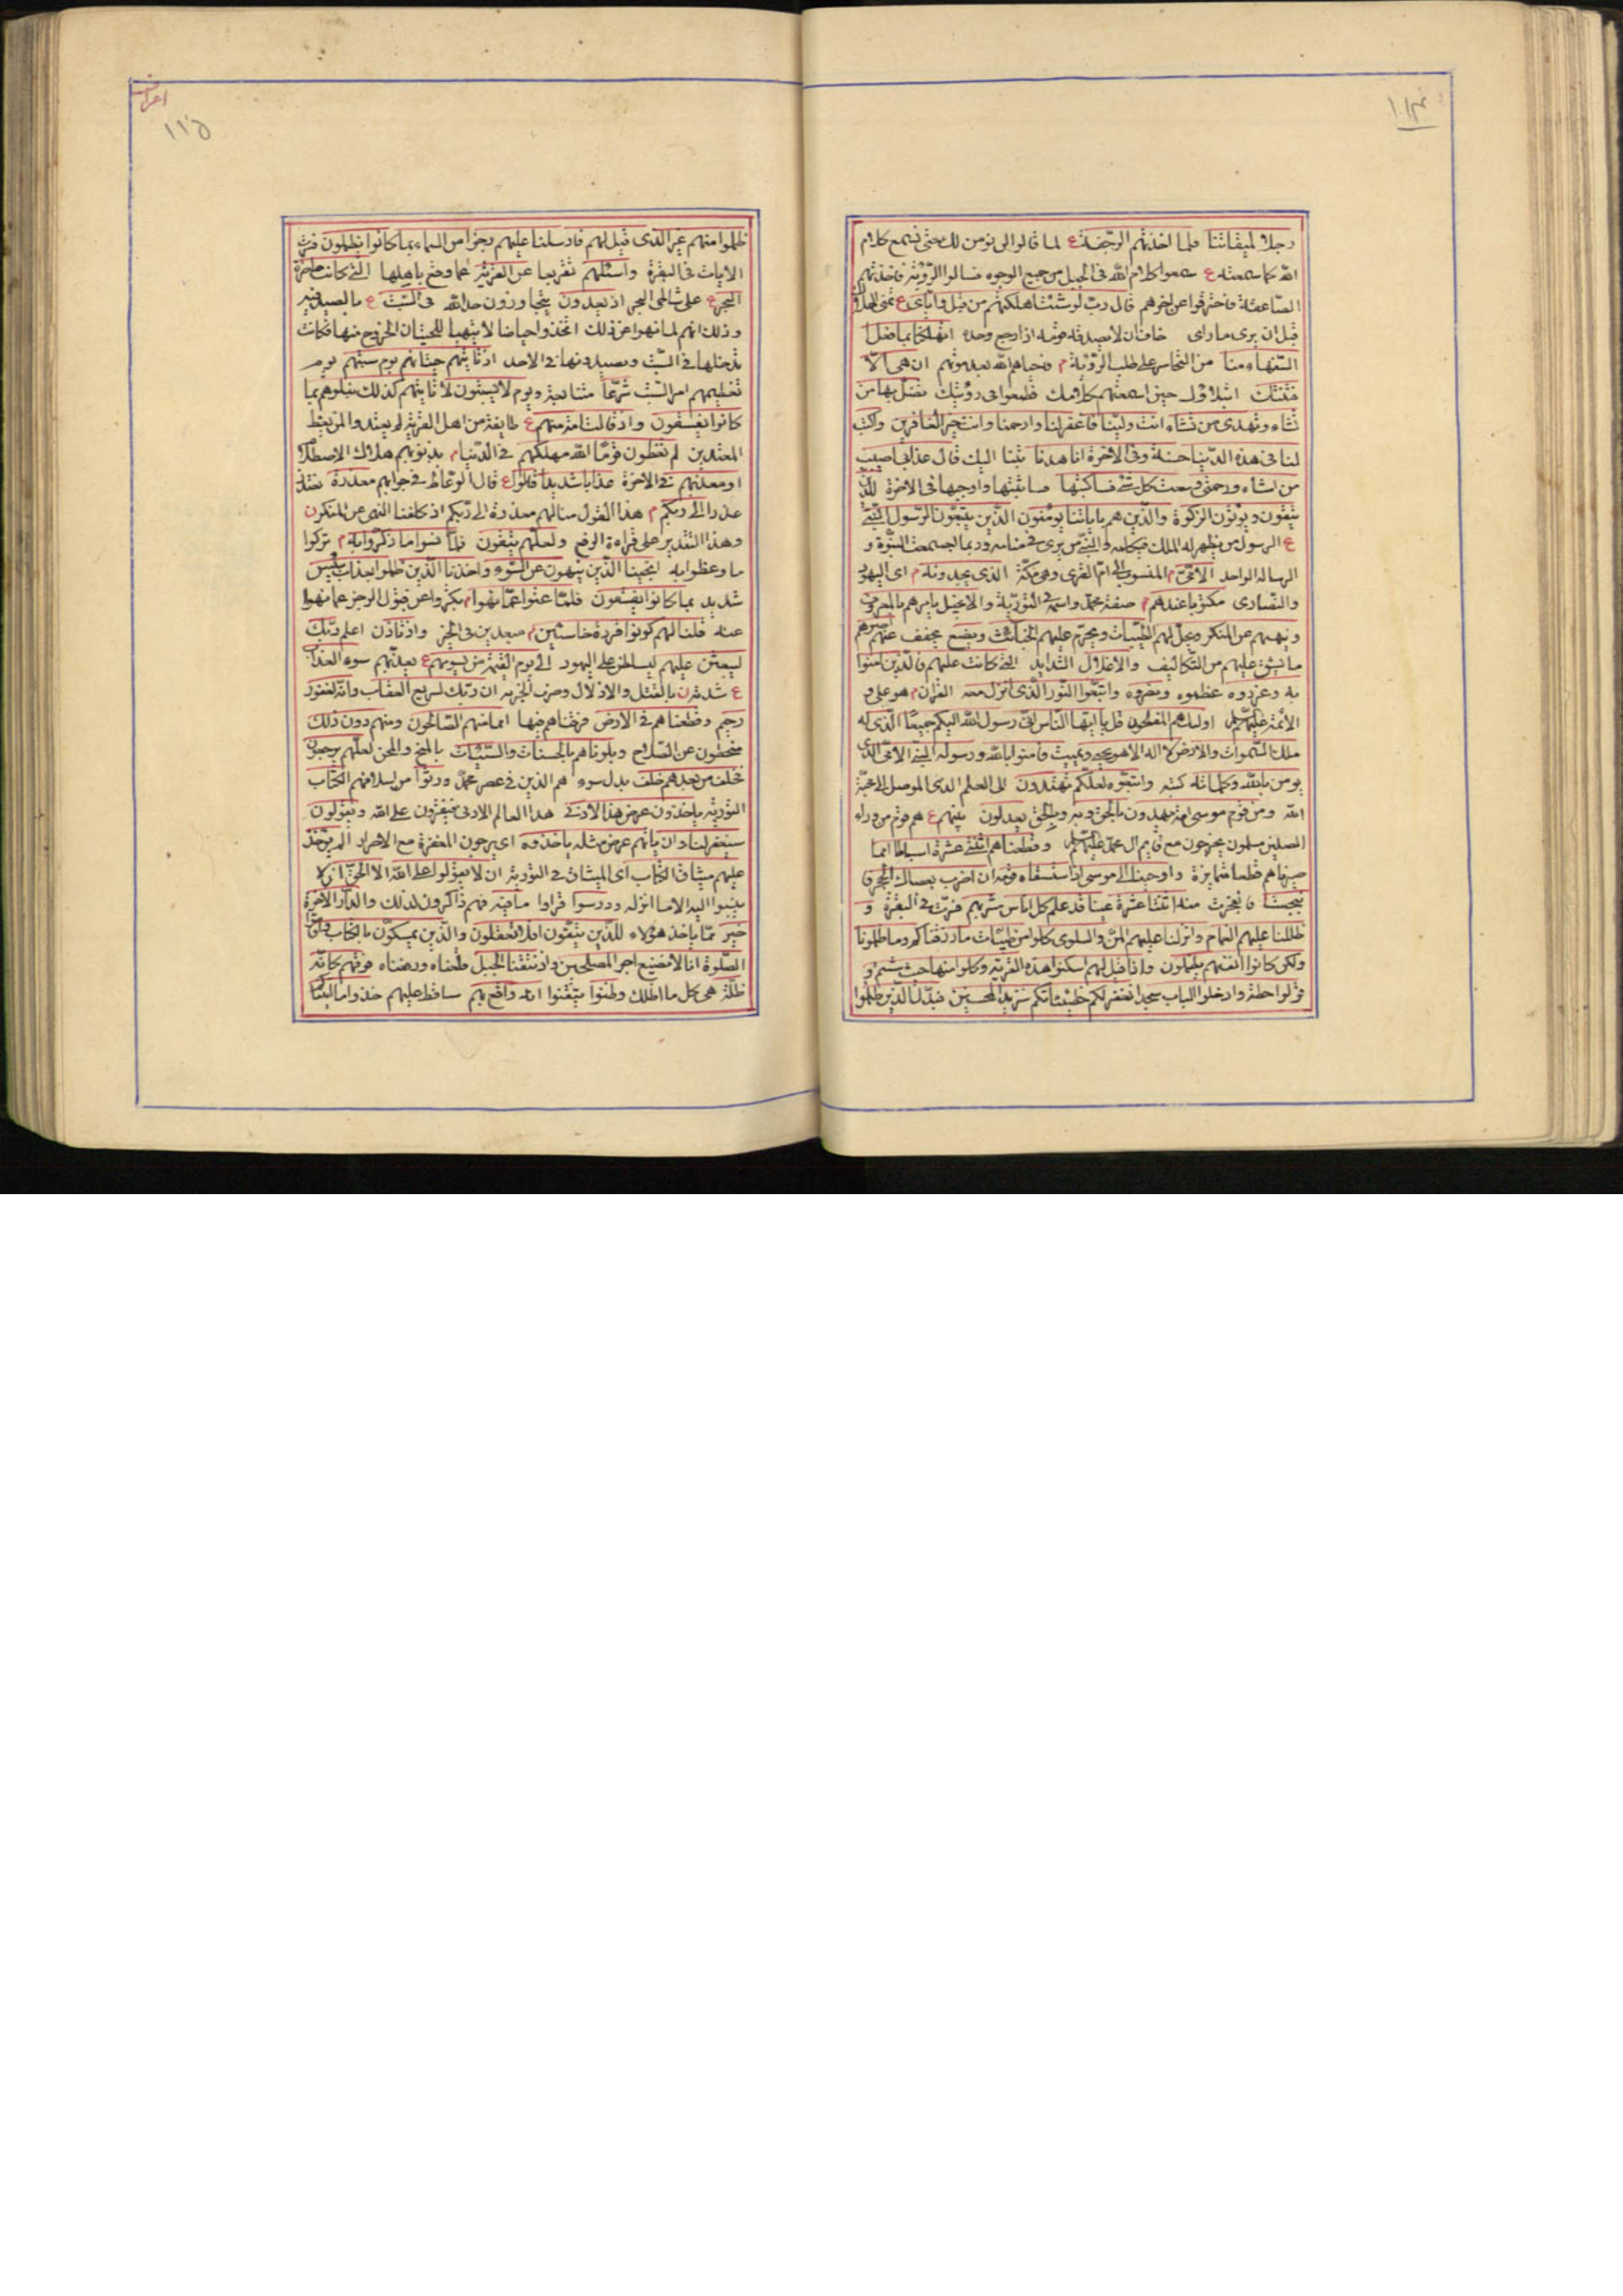 ١١٤
رجلا لميقاتنا فلما اخذتهم الرجفة ع لما قالوا لن نؤمن لك حتى نسمع كلام
الله كما سمعته ع سمعوا كلام الله فى الجبل من جميع الوجوه فسالوا الرؤية فاخذتهم
الصاعقة فاحترقوا عن اخرهم قال رب لو شئت اهلكتهم من قبل واياى ع تمنى الهلاك
قبل ان يرى ما راى خاف ان لا يصدقه قومه اذا رجع وحده اتهلكنا بما فعل
السفهاء منا من التجاسر على طلب الرؤية م فاحياهم الله بعد موتهم ان هى الا
فتنتك ابتلاؤك حين اسمعتهم كلامك فطمعوا فى رؤيتك تضل بها من
تشاء وتهدى من تشاء انت ولينا فاغفر لنا وارحمنا وانت خير الغافرين واكتب
لنا فى هذه الدنيا حسنة وفى الاخرة انا هدنا تبنا اليك قال عذابى اصيب
من اشاء ورحمتى وسعت كل شئ فساكتبها فساثبتها واوجبها فى الاخرة للذين
يتقون ويؤتون الزكوة والذين هم باياتنا يؤمنون الذين يتبعون الرسول النبى
ع الرسول من يظهر له الملك فيكلمه والنبى من يرى فى منامه وربما اجتمعت النبوة و
الرسالة لواحد الامى م المنسوب الى ام القرى وهى مكة الذى يجدونه م اى اليهود
والنصارى مكتوبا عندهم م صفة محمد واسمه فى التورية والانجيل يامرهم بالمعروف
وينهيهم عن المنكر ويحل لهم الطيبات ويحرم عليهم الخبائث ويضع يخفف عنهم اصرهم
ما يشق عليهم من التكاليف والاغلال الشدايد التى كانت عليهم فالذين امنوا
به وعزروه عظموه ونصروه واتبعوا النور الذى انزل معه القران م هو على و
الائمة عليهم السلام اولئك هم المفلحون قل يا ايها الناس انى رسول الله اليكم جميعا الذى له
ملك السموات والارض لا اله الا هو يحيى ويميت فامنوا بالله ورسوله النبى الامى الذى
يومن بالله وكلماته كتبه واتبعوه لعلكم تهتدون الى العلم اللدنى الموصل الى محبة
الله ومن قوم موسى امة يهدون بالحق وبه وبالحق يعدلون بينهم ع هم قوم من وراء
الصين مسلمون يخرجون مع قايم ال محمد عليهم السلام وقطعناهم اثنتى عشرة اسباطا امما
صيرناهم قطعا متمايزة واوحينا الى موسى اذ استسقاه قومه ان اضرب بعصاك الحجر ق
نبجست فانفجرت منه اثنتا عشرة عينا قد علم كل اناس مشربهم مرت فى البقرة و
ظللنا عليهم الغمام وانزلنا عليهم المن والسلوى كلوا من طيبات ما رزقناكم وما ظلمونا
ولكن كانوا انفسهم يظلمون واذ قيل لهم اسكنوا هذه القرية وكلوا منها حيث شئتم و
قولوا حطة وادخلوا الباب سجدا نغفر لكم خطيئاتكم سنزيد المحسنين فبدل الذين ظلموا
اعراف
١١٥
ظلموا منهم غير الذى قيل لهم فارسلنا عليهم رجزا من السماء بما كانوا يظلمون مرت
الايات فى البقرة واسئلهم تقريعا عن القرية عما وقع باهلها التى كانت حاضرة
البحر ع على شاطى البحر اذ يعدون يتجاوزون حد الله فى السبت ع بالصيد فيه
وذلك انهم لما نهوا عن ذلك اتخذوا حياضا لا يتهيا للحيتان الخروج منها فكانت
تدخلها فى السبت ويصيدونها فى الاحد اذ تاتيهم حيتانهم يوم سبتهم يوم
تعظيمهم امر السبت شرعا متتابعة ويوم لا يسبتون لا تاتيهم كذلك نبلوهم بما
كانوا يفسقون واذ قالت امة منهم ع طايفة من اهل القرية لم يعتدوا لمن يعظ
المعتدين لم تعظون قوما الله مهلكهم فى الدنيا م بذنوبهم هلاك الاصطلام
او معذبهم فى الاخرة عذابا شديدا قالوا ع قال الوعاظ فى جوابهم معذرة نعتذر
عذرا الى ربكم م هذا القول منا لهم معذرة الى ربكم اذ كلفنا النهى عن المنكر ن
وهذا التقدير على قراءة الرفع ولعلهم يتقون فلما نسوا ما ذكروا به م تركوا
ما وعظوا به انجينا الذين ينهون عن السوء واخذنا الذين ظلموا بعذاب بئيس
شديد بما كانوا يفسقون فلما عتوا عما نهوا م تكبروا عن قبول الزجر عما نهوا
عنه قلنا لهم كونوا قردة خاسئين م مبعدين عن الخير واذ تاذن اعلم ربك
ليبعثن عليهم ليسلطن على اليهود الى يوم القيمة من يسومهم ع يعذبهم سوء العذاب
ع شدته ن بالقتل والاذلال وضرب الجزية ان ربك لسريع العقاب وانه لغفور
رحيم وقطعناهم فى الارض فرقناهم فيها امما منهم الصالحون ومنهم دون ذلك
منحطون عن الصلاح وبلوناهم بالحسنات والسيئات بالمنح والمحن لعلهم يرجعون
فخلف من بعدهم خلف بدل سوء هم الذين فى عصر محمد ورثوا من اسلافهم الكتاب
التورية ياخذون عرض هذا الادنى هذا العالم الادنى فيفترون على الله ويقولون
سيغفر لنا وان ياتهم عرض مثله ياخذوه اى يرجون المغفرة مع الاصرار الم يؤخذ
عليهم ميثاق الكتاب اى الميثاق فى التورية ان لا يقولوا على الله الا الحق ان لا
ينسبوا اليه الا ما انزله ودرسوا قراوا ما فيه فهم ذاكرون لذلك والدار الاخرة
خير مما ياخذ هؤلاء للذين يتقون افلا تعقلون والذين يمسكون بالكتاب واقاموا
الصلوة انا لا نضيع اجر المصلحين واذ نتقنا الجبل قلعناه ورفعناه فوقهم كانه
ظلة هى كل ما اظلك وظنوا تيقنوا انه واقع بهم ساقط عليهم خذوا ما اتيناكم